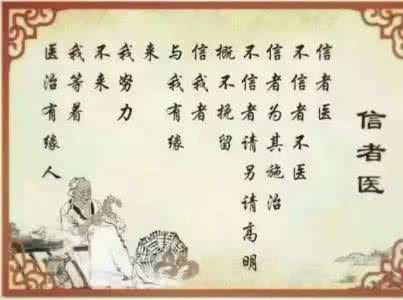 信者医
信者医
不信者不医
信者为其施治
不信者请另请高明
概不挽留
信我者
与我有缘
来
我努力
不来
我等着
医治有缘人